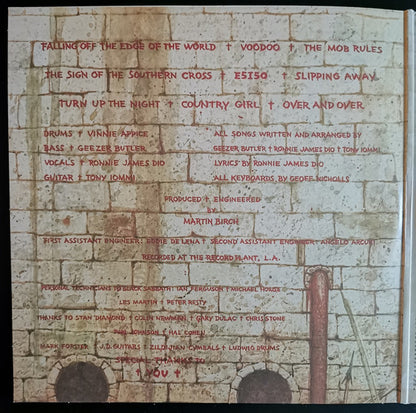 FALLING OFF THE EDGE OF THE WORLD † VOODOO † THE MOB RULES
THE SIGN OF THE SOUTHERN CROSS † E5150 † SLIPPING AWAY
TURN UP THE NIGHT † COUNTRY GIRL † OVER AND OVER
DRUMS † VINNIE APPICE
BASS † GEEZER BUTLER
VOCALS † RONNIE JAMES DIO
GUITAR † TONY IOMMI
ALL SONGS WRITTEN AND ARRANGED BY
GEEZER BUTLER † RONNIE JAMES DIO † TONY IOMMI
LYRICS BY RONNIE JAMES DIO
ALL KEYBOARDS BY GEOFF NICHOLLS
PRODUCED † ENGINEERED
BY
MARTIN BIRCH
FIRST ASSISTANT ENGINEER: EDDIE DE LENA † SECOND ASSISTANT ENGINEER: ANGELO ARCURI
RECORDED AT THE RECORD PLANT, L.A.
PERSONAL TECHNICIANS TO BLACK SABBATH: IAN FERGUSON † MICHAEL HOWSE
LES MARTIN † PETER RESTY
THANKS TO STAN DIAMOND † COLIN NEWMAN † GARY DULAC † CHRIS STONE
PAUL JOHNSON † HAL COHEN
MARK FORSTER † J.D. GUITARS † ZILDJIAN CYMBALS † LUDWIG DRUMS
SPECIAL THANKS TO
† YOU †